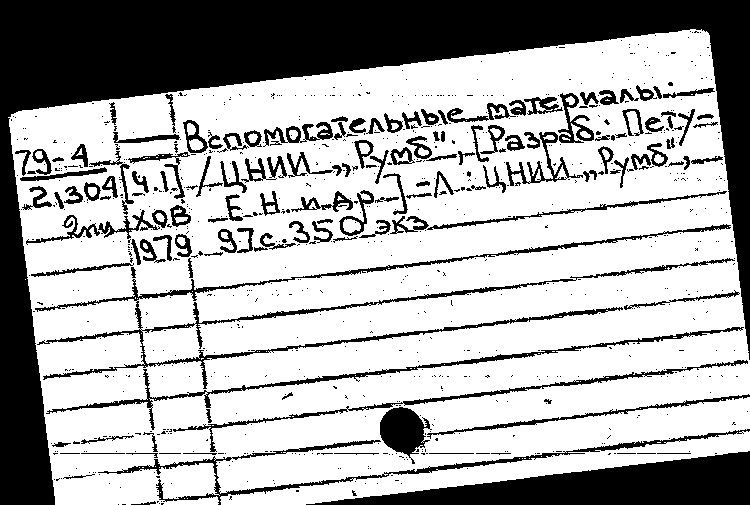 Вспомогательные материалы:
79-4 / ЦНИИ „Румб"; [Разраб.: Пету=
21304 [Ч.1] Е.Н. и др.] =Л.: ЦНИИ „Румб",
хов
1979. 97с. 350 экз